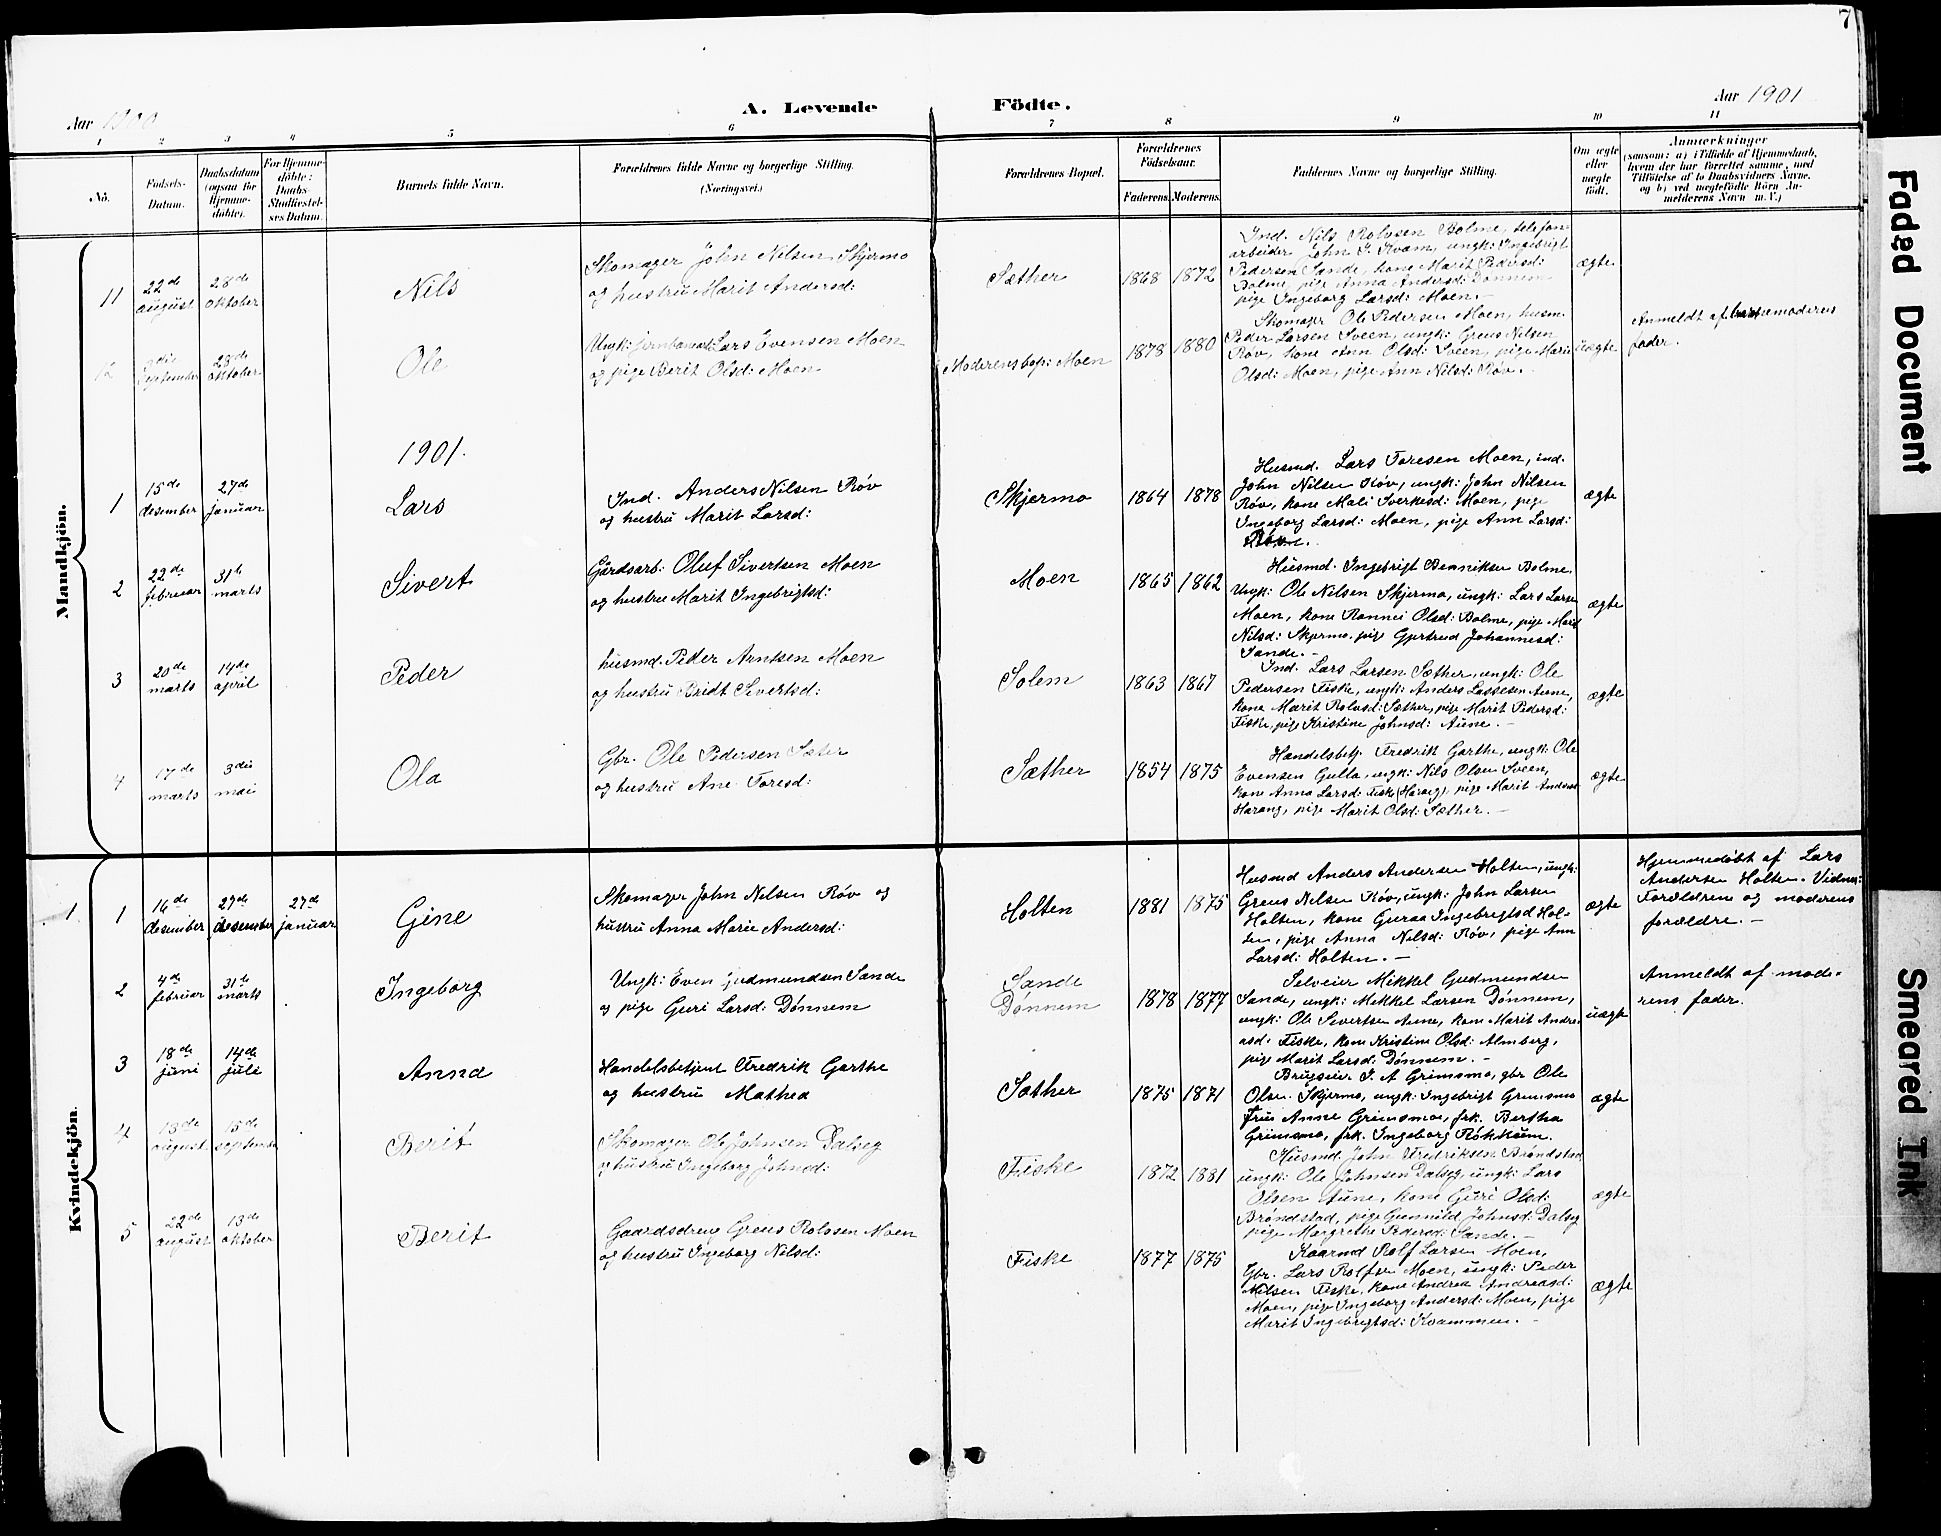 7
A. Levende Födte.
Aar 1900
Aar 1901
1 2 3 4 5 6 7 8 9 10 11
Nö.
Födsels-
Datum.
Daabsdatum
(ogsaa for
Hjemme-
döbte).
For Hjemme-
döbte:
Daabs-
Stadfæstel-
ses Datum.
Barnets fulde Navn.
Forældrenes fulde Navne og borgerlige Stilling.
(Næringsvei.)
Forældrenes Bopæl.
Forældrenes
Födselsaar.
Faderens. Moderens.
Faddernes Navne og borgerlige Stilling.
Om ægte
eller
uægte
födt.
Anmærkninger
(saasom: a) i Tilfælde af Hjemmedaab,
hvem der har forrettet samme, med
Tilföielse af to Daabsvidners Navne,
og b) ved uægtefödte Börn An-
melderens Navn m. V.)
Mandkjön.
11
22de
august
28de
oktober
Nils
Skomager John Nilsen Skjermo
og hustru Marit Andersd:
Sæther
1868 1872
Ind. Nils Rolvsen Bolme, telefon
arbeider John I. Kvam, ungk: Ingebrigt
Pedersen Sande, kone Marit Pedersd:
Bolme, pige Anna Andersd: Dønnem
pige Ingeborg Larsd: Moen.-
ægte
12
september
28de
oktober
Ole
Ungk: Lars Evensen Moen
og pige Berit Olsd: Moen
Moderens bop: Moen
1878 1880
Skomager Ole Pedersen Moen, husm.
Peder Larsen Sveen, ungk: Greus Nilsen
Røv, kone Ann Olsd: Sveen, pige Marie
Olsd: Moen, pige Ann Nilsd: Røv.
uægte
Anmeldt af barnemoderens
fader.
1901.
1
15de
desember
27de
januar
Lars
Ind. Anders Nilsen Røv
og hustru Marit Larsd:
Skjermo
1864 1878
Husmd. Lars Toresen Moen, ind.
John Nilsen Røv, ungk: John Nilsen
Røv, kone Mali Sverkesd: Moen, pige
Ingeborg Larsd: Moen, pige Ann Larsd:
ægte
2
22de
februar
31te
marts
Sivert
Gårdsarb: Oluf Sivertsen Moen
og hustru Marit Ingebrigtsd:
Moen
1865 1862
Husmd. Ingebrigt Benniksen Bolme.
Ungk: Ole Nilsen Skjermo, ungk: Lars Larsen
Moen, kone Rannei Olsd: Bolme, pige Marit
Nilsd: Skjermo, pige Gjertrud Johannesd:
Sande.-
ægte
3
20de
marts
14de
april
Peder
husmd. Peder Arntsen Moen
og hustru Bridt Sivertsd:
Solem
1863 1867
Ind. Lars Larsen Sæther, ungk: Ole
Pedersen Fiske, ungk: Anders Lassesen Aune,
kone Marit Rolvsd: Sæther, pige Marit Pedersd:
Fiske, pige Kristine Johnsd: Aune.-
ægte
4
17de
marts
3die
mai
Ola
Gbr. Ole Pedersen Sæter
og hustru Ane Toresd:
Sæther
1854 1875
Handelsbetj. Fredrik Garthe, ungk: Ole
Evensen Gulla, ungk: Nils Olsen Sveen,
kone Anna Larsd: Fiske (Harang), pige Marit Andersd
Harang, pige Marit Olsd: Sæther.-
ægte
Kvindekjön.
1.
1
16de
desember
27de
desember
27de
januar
Gine
Skomager John Nilsen Røv og
hustru Anna Marie Andersd:
Holten
1881 1875
Husmd Anders Andersen Holten, ungk:
Greus Nilsen Røv, ungk: John Larsen
Holten, kone Guraa Ingebrigtsd Hol-
ten, pige Anna Nilsd: Røv, pige Ann
Larsd: Holten.-
ægte
Hjemmedøbt af Lars
Andersen Holten. Vidner:
Forældrene og moderens
forældre.-
2
4de
februar
31te
marts
Ingeborg
Ungk: Even Gudmundsen Sande
og pige Guri Larsd: Dønnem
Sande
Dønnem
1878 1877
Selveier Mikkel Gudmundsen
Sande, ungk: Mikkel Larsen Dønnem,
ungk: Ole Sivertsen Aune, kone Marit Andre-
asd: Fiske, kone Kristine Olsd: Almberg,
pige Marit Larsd: Dønnem.-
uægte
Anmeldt af mode-
rens fader.
3
18de
juni
14de
juli
Anna
Handelsbetjent Fredrik Garthe
og hustru Mathea
Sæther
1875 1871
Brugseier I. A Grimsmo, gbr Ole
Olsen Skjermo, ungk: Ingebrigt Grimsmo
Frue Anne Grimsmo, frk. Bertha
Grimsmo, frk. Ingeborg Røkkum.
ægte
4
13de
august
15de
september
Berit
Skomager Ole Johnsen Dalseg
og hustru Ingeborg Johnsd:
Fiske
1872 1881
Husmd. John Fredriksen Brøndstad,
ungk: Ole Johnsen Dalseg, ungk: Lars
Olsen Aune, kone Guri Olsd:
Brøndstad, pige Gunnild Johnsd: Dalseg
pige Margrethe Pedersd: Sande.-
ægte
5
22de
august
13de
oktober
Berit
Gaardsdreng Greus Rolvsen Moen
og hustru Ingeborg Nilsd:
Fiske
1877 1875
Kaarmd Rolf Larsen Moen,
Gbr. Lars Rolfsen Moen, ungk: Peder
Nilsen Fiske, kone Andrea Andreasd:
Moen, pige Ingeborg Andersd: Moen, pige
Marit Ingebrigtsd: Kvammen.-
ægte
Faded Document
Smeared Ink